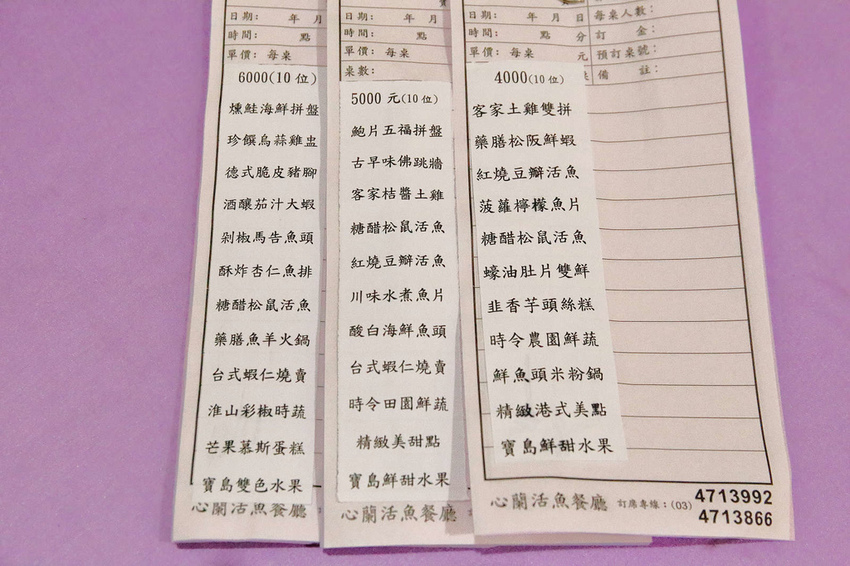 日期： 年 月
時間： 點
單價： 每桌
6000(10 位)
燻鮭海鮮拼盤
珍饌烏蒜雞盅
德式脆皮豬腳
酒釀茄汁大蝦
剁椒馬告魚頭
酥炸杏仁魚排
糖醋松鼠活魚
藥膳魚羊火鍋
台式蝦仁燒賣
淮山彩椒時蔬
芒果慕斯蛋糕
寶島雙色水果
心蘭活魚餐廳
日期： 年 月
時間： 點
單價： 每桌
桌數：
5000 元(10 位)
鮑片五福拼盤
古早味佛跳牆
客家桔醬土雞
糖醋松鼠活魚
紅燒豆瓣活魚
川味水煮魚片
酸白海鮮魚頭
台式蝦仁燒賣
時令田園鮮蔬
精緻美甜點
寶島鮮甜水果
心蘭活魚餐廳
日期： 年 月 日 每桌人數：
時間： 點 分 訂 金：
單價： 每桌 元 預訂桌號：
備 註：
4000(10 位)
客家土雞雙拼
藥膳松阪鮮蝦
紅燒豆瓣活魚
菠蘿檸檬魚片
糖醋松鼠活魚
蠔油肚片雙鮮
韭香芋頭絲糕
時令農園鮮蔬
鮮魚頭米粉鍋
精緻港式美點
寶島鮮甜水果
心蘭活魚餐廳 訂席專線：(03) 4713992
4713866